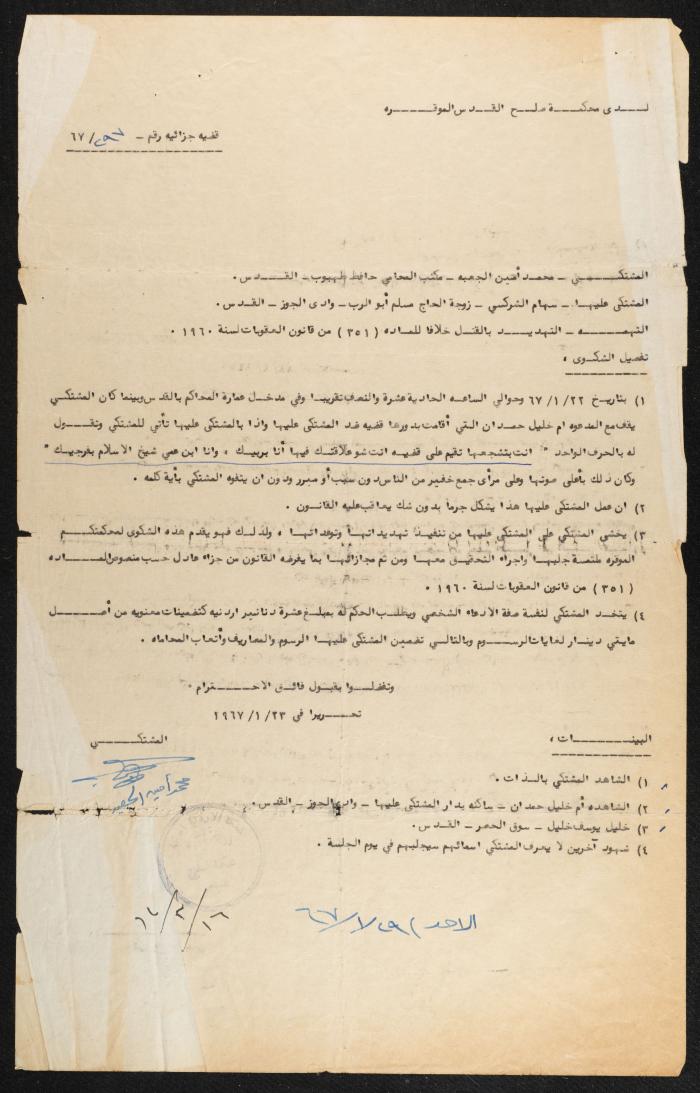 لدى محكمة صلح القدس الموقره
قضيه جزائيه رقم - /٦٧
المشتكي - محمد أمين الجعبه - مكتب المحامي حافظ طهبوب - القدس .
المشتكى عليها - سهام الشركسي - زوجة الحاج مسلم أبو الرب - وادى الجوز - القدس .
التهمه - التهديد بالقتل خلافا للماده ( ٣٥١ ) من قانون العقوبات لسنة ١٩٦٠ .
تفصيل الشكوى ،
١) بتاريخ ٦٧/١/٢٢ وحوالي الساعه الحادية عشرة والنصف تقريبا وفي مدخل عمارة المحاكم بالقدس وبينما كان المشتكي
يقف مع المدعوه ام خليل حمدان التي أقامت بدورها قضيه ضد المشتكى عليها واذا بالمشتكى عليها تأتي للمشتكي وتقول
له بالحرف الواحد " انت بتشجعها تقيم علي قضيه انت شو علاقتك فيها أنا بربيك ، وانا ابن عمي شيخ الاسلام بفرجيك "
وكان ذلك بأعلى صوتها وعلى مرأى جمع غفير من الناس دون سبب أو مبرر ودون ان يتفوه المشتكي بأية كلمه .
٢) ان عمل المشتكى عليها هذا يشكل جرما بدون شك يعاقب عليه القانون .
٣) يخشى المشتكي على المشتكى عليها من تنفيذ تهديداتها وتوعداتها ، ولذلك فهو يقدم هذه الشكوى لمحكمتكم
الموقره ملتمسة جلبها واجراء التحقيق معها ومن ثم مجازاتها بما يفرضه القانون من جزاء عادل حسب منصوص الماده
( ٣٥١ ) من قانون العقوبات لسنة ١٩٦٠ .
٤) يتخذ المشتكي لنفسة صفة الادعاء الشخصي ويطلب الحكم له بمبلغ عشرة دنانير اردنيه كتضمينات معنويه من أصل
مايتي دينار لغايات الرسوم وبالتالي تضمين المشتكى عليها الرسوم والمصاريف وأتعاب المحاماه .
وتفضلوا بقبول فائق الاحترام .
تحريرا في ١٩٦٧/١/٢٣
المشتكي
محمد امين الجعبه
البينات ،
١) الشاهد المشتكي بالذات .
٢) الشاهده أم خليل حمدان - ساكنه بدار المشتكى عليها - وادي الجوز - القدس .
٣) خليل يوسف خليل - سوق الحصر - القدس .
٤) شهود آخرين لا يعرف المشتكي اسمائهم سيجلبهم في يوم الجلسة .
الاحد